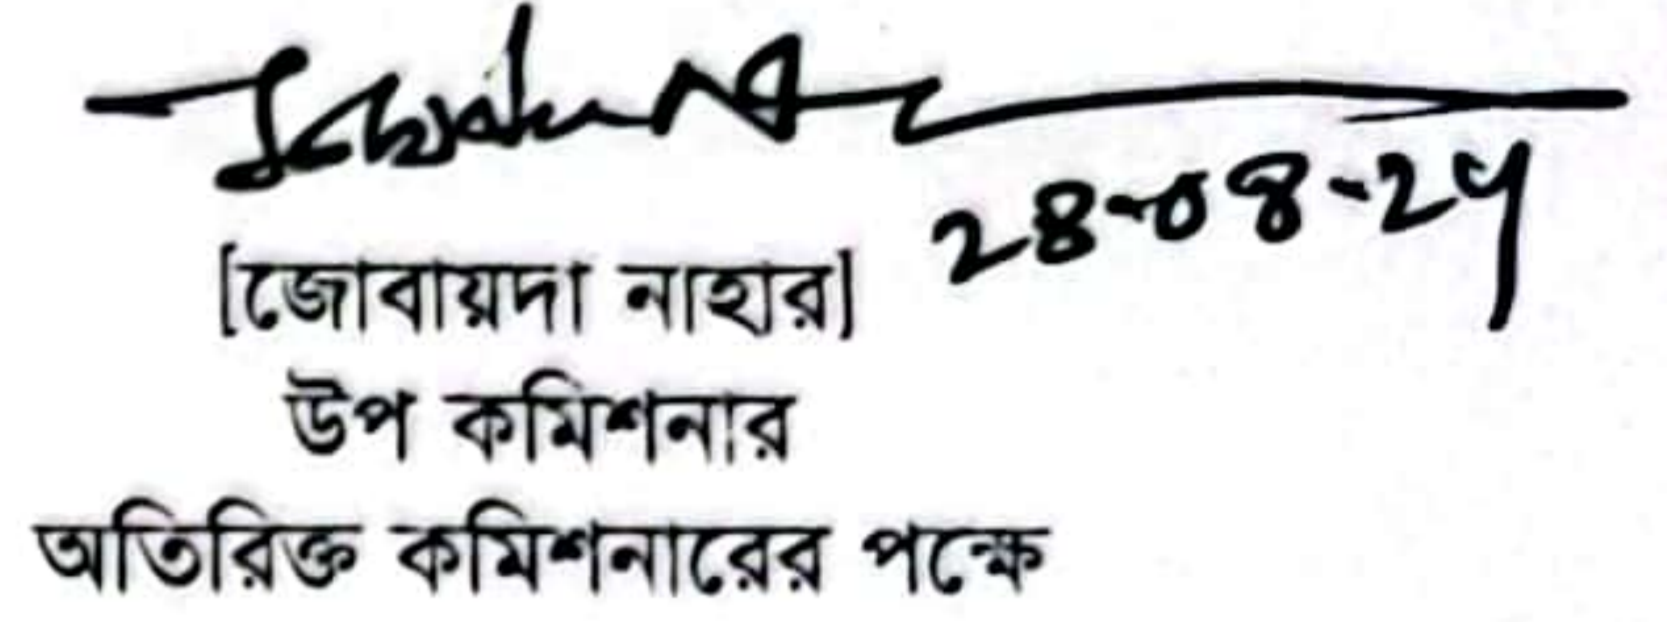 28-08-24
[জোবায়দা নাহার]
উপ কমিশনার
অতিরিক্ত কমিশনারের পক্ষে